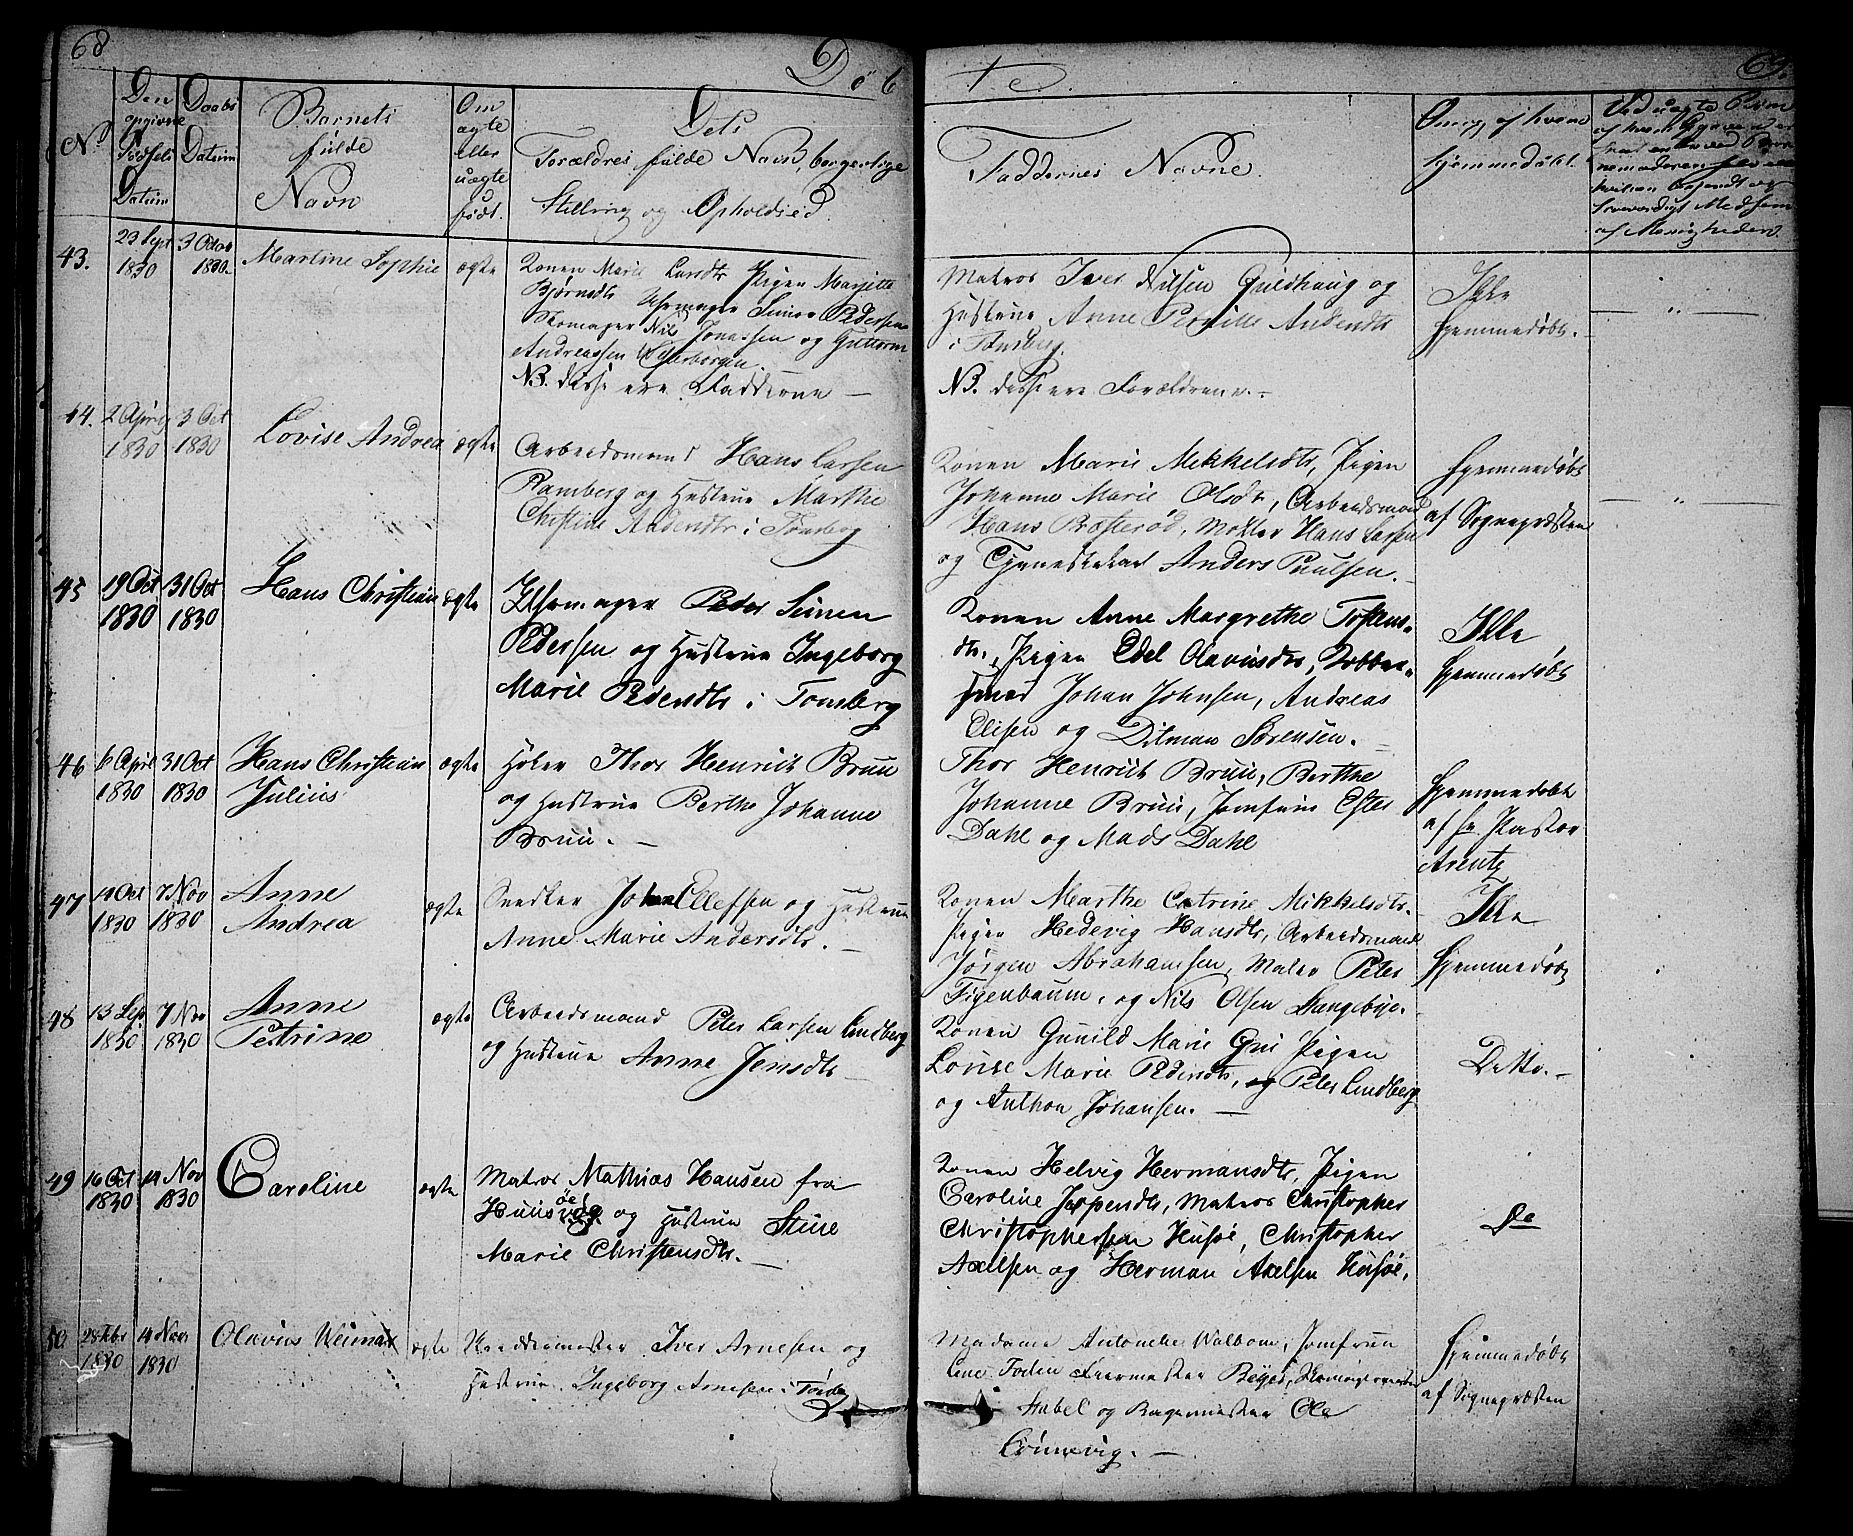 68
Døb
te.
69.
No
Den opgivne Fødsels Datum
Daabs Datum
Barnets fulde Navn
Om ægte eller uægte født.
Dets Forældres fulde Navn, borgerlige Stilling og Opholdsted.
Faddernes Navne.
Om og af hvem hjemmedøbt.
43.
23 Sept 1830
3 Octob 1830
Martine Sophie
ægte
Konen Marie Larsdtr Pigen Mariette
Bjørnsdtr Uhrmager Simon Pedersen
Skomager Nils Jonassen og Guttorm
Andreassen
NB. disse ere Fadderne —
Matros Iver Nilsen Qvidhaug og
Hustrue Anne Pernille Andersdtr
i Tønsberg.
NB. disse ere Forældrene. —
Ikke
hjemmedøbt.
44.
2 April 1830
3 Oct 1830
Lovise Andrea
ægte
Arbeidsmand Hans Larsen
Ramberg og Hustrue Marthe
Christine Andersdtr i Tønsberg
Konen Marie Mikkelsdtr, Pigen
Johanne Marie Olsdtr, Arbeidsmand
Hans Basterød, Møller Hans Larsen
og Tjenestekarl Anders Paulsen.
hjemmedøbt
af Sognepræsten
45
19 Oct 1830
31 Oct 1830
Hans Christian
ægte
Uhrmager Peder Simen
Pedersen og Hustrue Ingeborg
Marie Pedersdtr i Tønsberg
Konen Anne Margrethe Torstens-
dtr, Pigen Edel Olavusdtr, Kobber-
smed Johan Johnsen, Andreas
Elisen og Ditman Sørensen.
Ikke
hjemmedøbt
46
6 April 1830
31 Oct 1830
Hans Christian
Julius
ægte
Høker Thor Henrich Bruu
og Hustrue Berthe Johanne
Bruu. —
Thor Henrich Bruu, Berthe
Johanne Bruu, Jomfrue Ester
Dahl og Mads Dahl
hjemmedøbt
af Hr Pastor
Arentz
47
14 Oct 1830
7 Nov 1830
Anne
Andrea
ægte
Snedker Johan Ellefsen og Hustrue
Anne Marie Andersdtr. —
Konen Marthe Catrine Mikkelsdtr.
Pigen Hedevig Hansdtr, Arbeidsmand
Jørgen Abrahamsen, Maler Peter
Figenbaum, og Nils Olsen Slangebye.
Ikke
hjemmedøbt
48
13 Sep 1830
7 Nov 1830
Anne
Petrine
ægte
Arbeidsmand Peter Larsen Lindberg
og Hustrue Anne Jensdtr —
Konen Gunild Marie Gui Pigen
Lovise Marie Pedersdtr, og Peter Lindberg
og Anthon Johansen. —
Detto. —
49
16 Oct 1830
14 Nov 1830
Caroline
ægte
Matros Mathias Hansen fra
Huusøe og Hustrue Stine
Marie Christensdtr. —
Konen Helvig Hermansdtr, Pigen
Caroline Jespersdtr, Matros Christopher
Christophersen Husøe, Christopher
Axelsen og Herman Axelsen Husøe.
do
50
28 Febr 1830
14 Nov 1830
Olavus Weimar
ægte
Iver Arnesen og
Hustrue Ingeborg Arnesen i Tønsberg
Madame Antonette Walbom, Jomfrue
Line Foden
Stabel og Bagermester Ole
Lønnevig. —
hjemmedøbt
af Sognepræsten